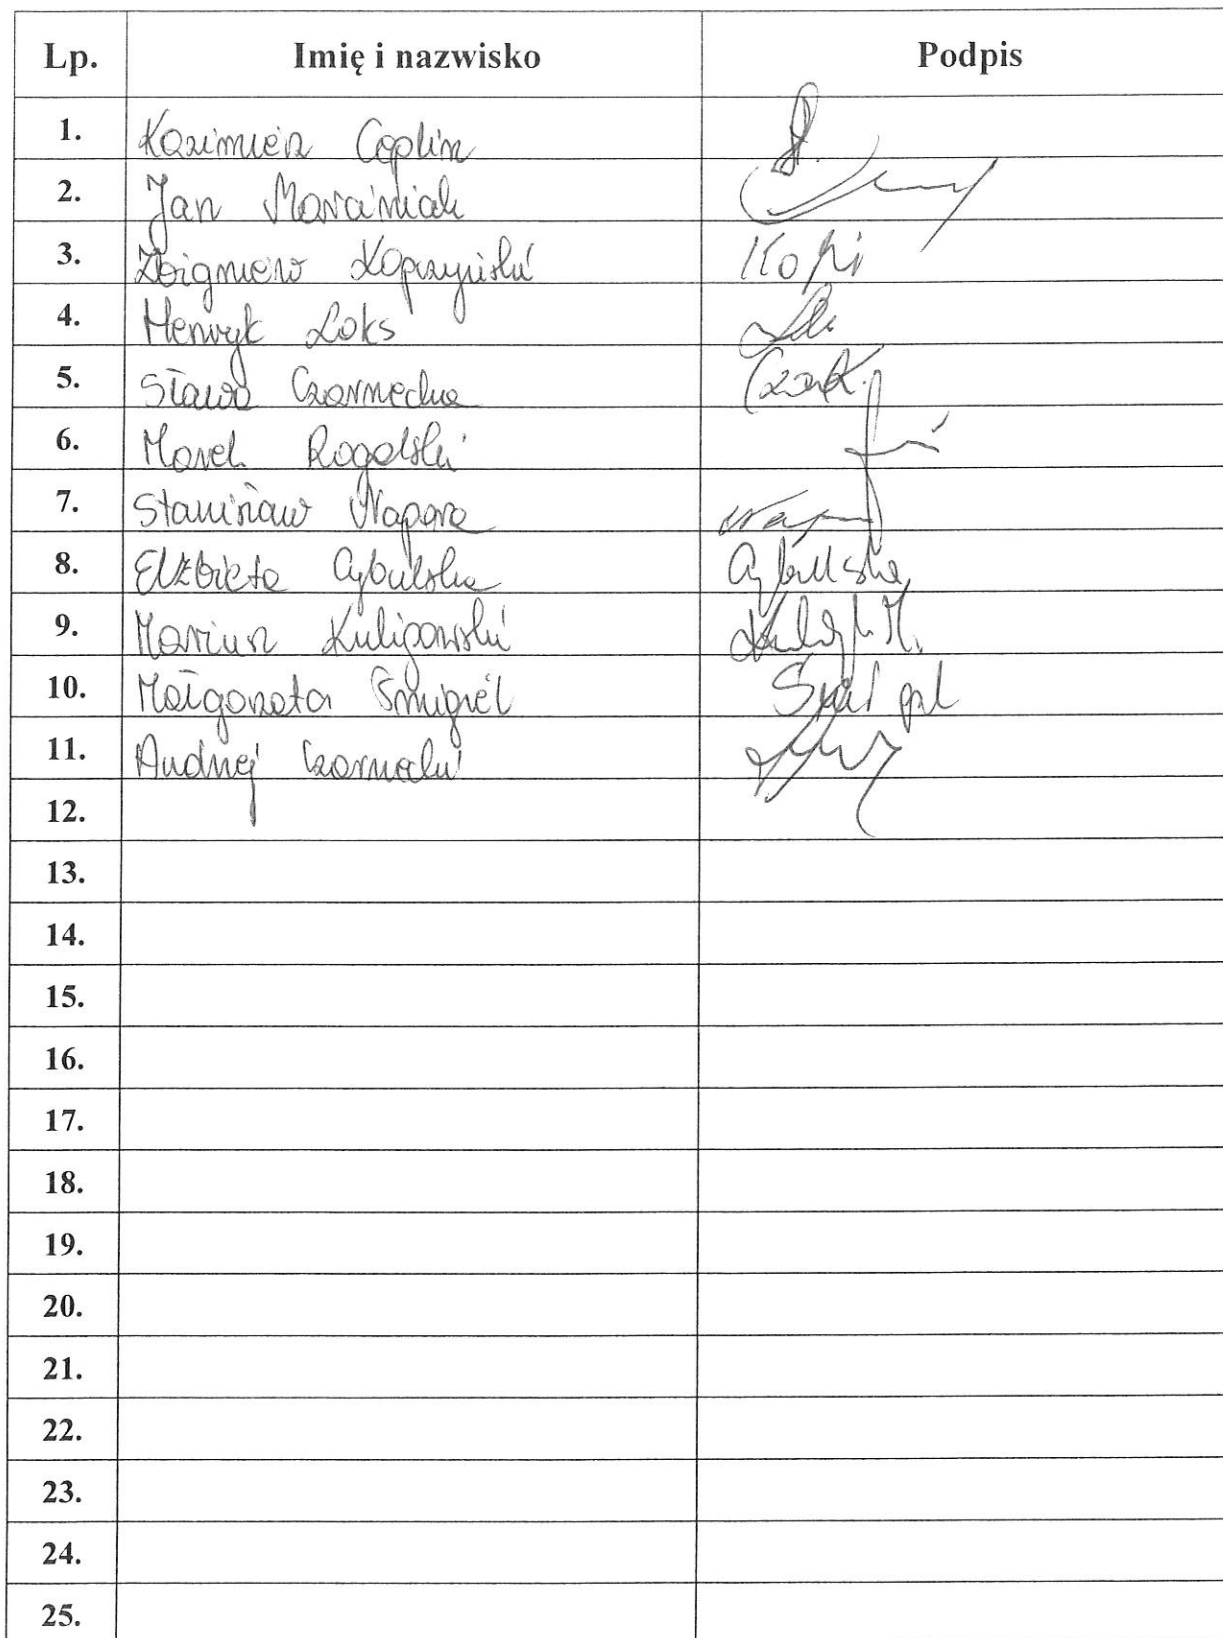 Lp. Imię i nazwisko Podpis
1. Kazimierz Ceplin
2. Jan Marciniak
3. Zbigniew Kopczyński
4. Henryk Loks
5. Sława Czarnecka
6. Marek Rogalski
7. Stanisław Napora
8. Elżbieta Cybulska Cybulska
9. Mariusz Kuligowski
10. Małgorzata Śmigiel
11. Andrzej Czarnecki
12.
13.
14.
15.
16.
17.
18.
19.
20.
21.
22.
23.
24.
25.